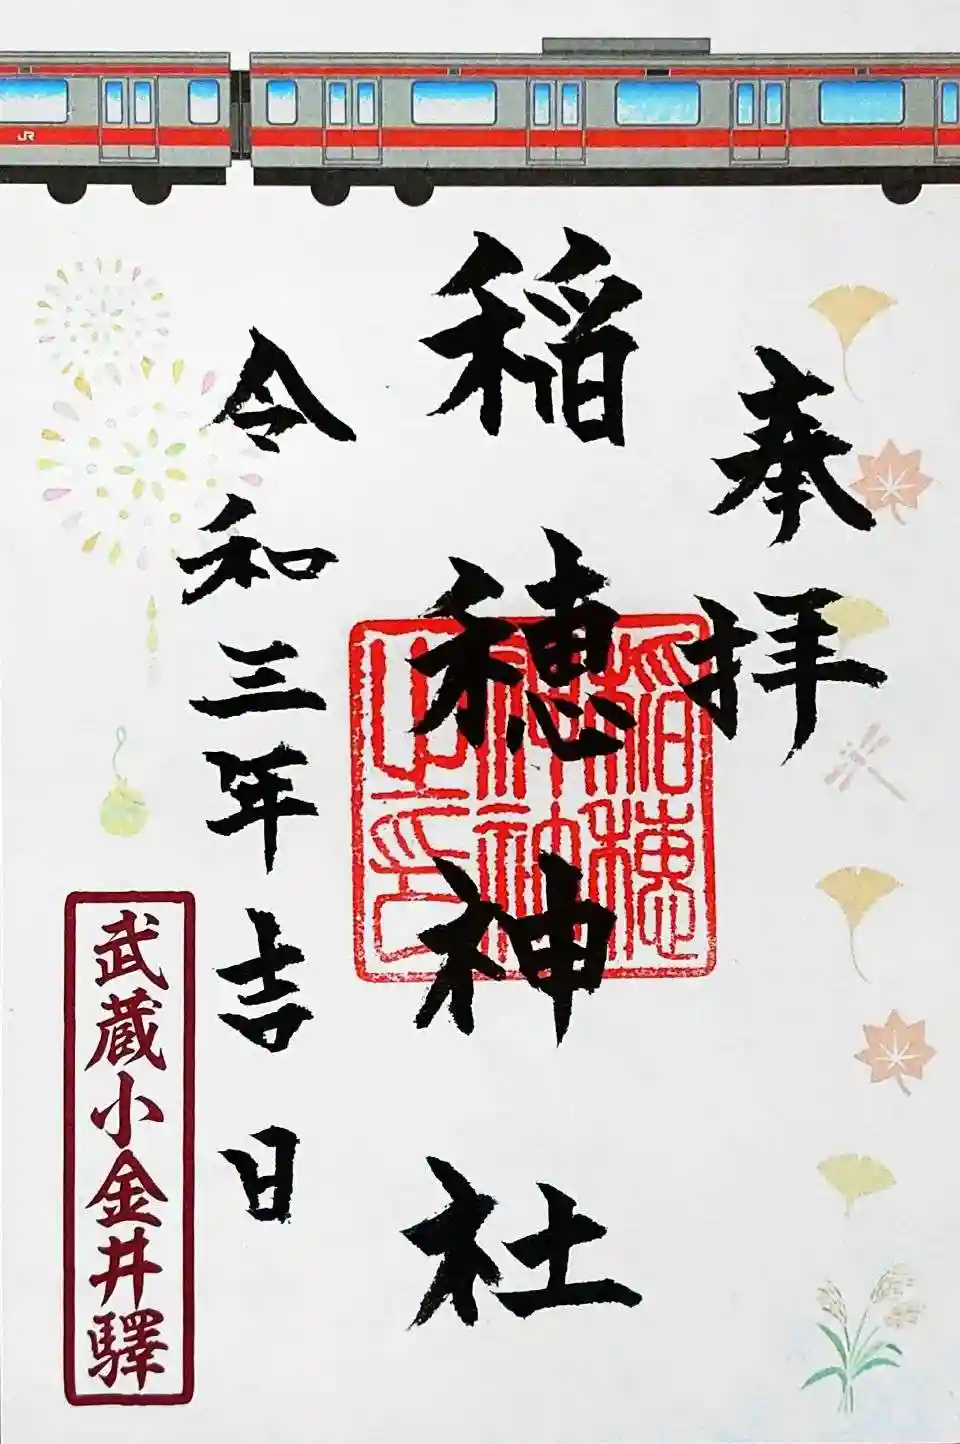 JR
奉拝
稲穂神社
稲穂
神社
之印
令和三年吉日
武蔵小金井驛